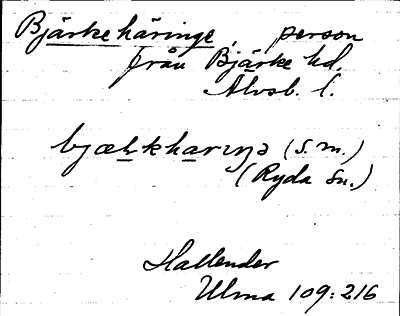 Bjärkehäringe, person
från Bjärke hd.
Älvsb. l.
bjæɫkharıŋə (s.m.)
(Ryda sn.)
Hallender
Ulma 109:216